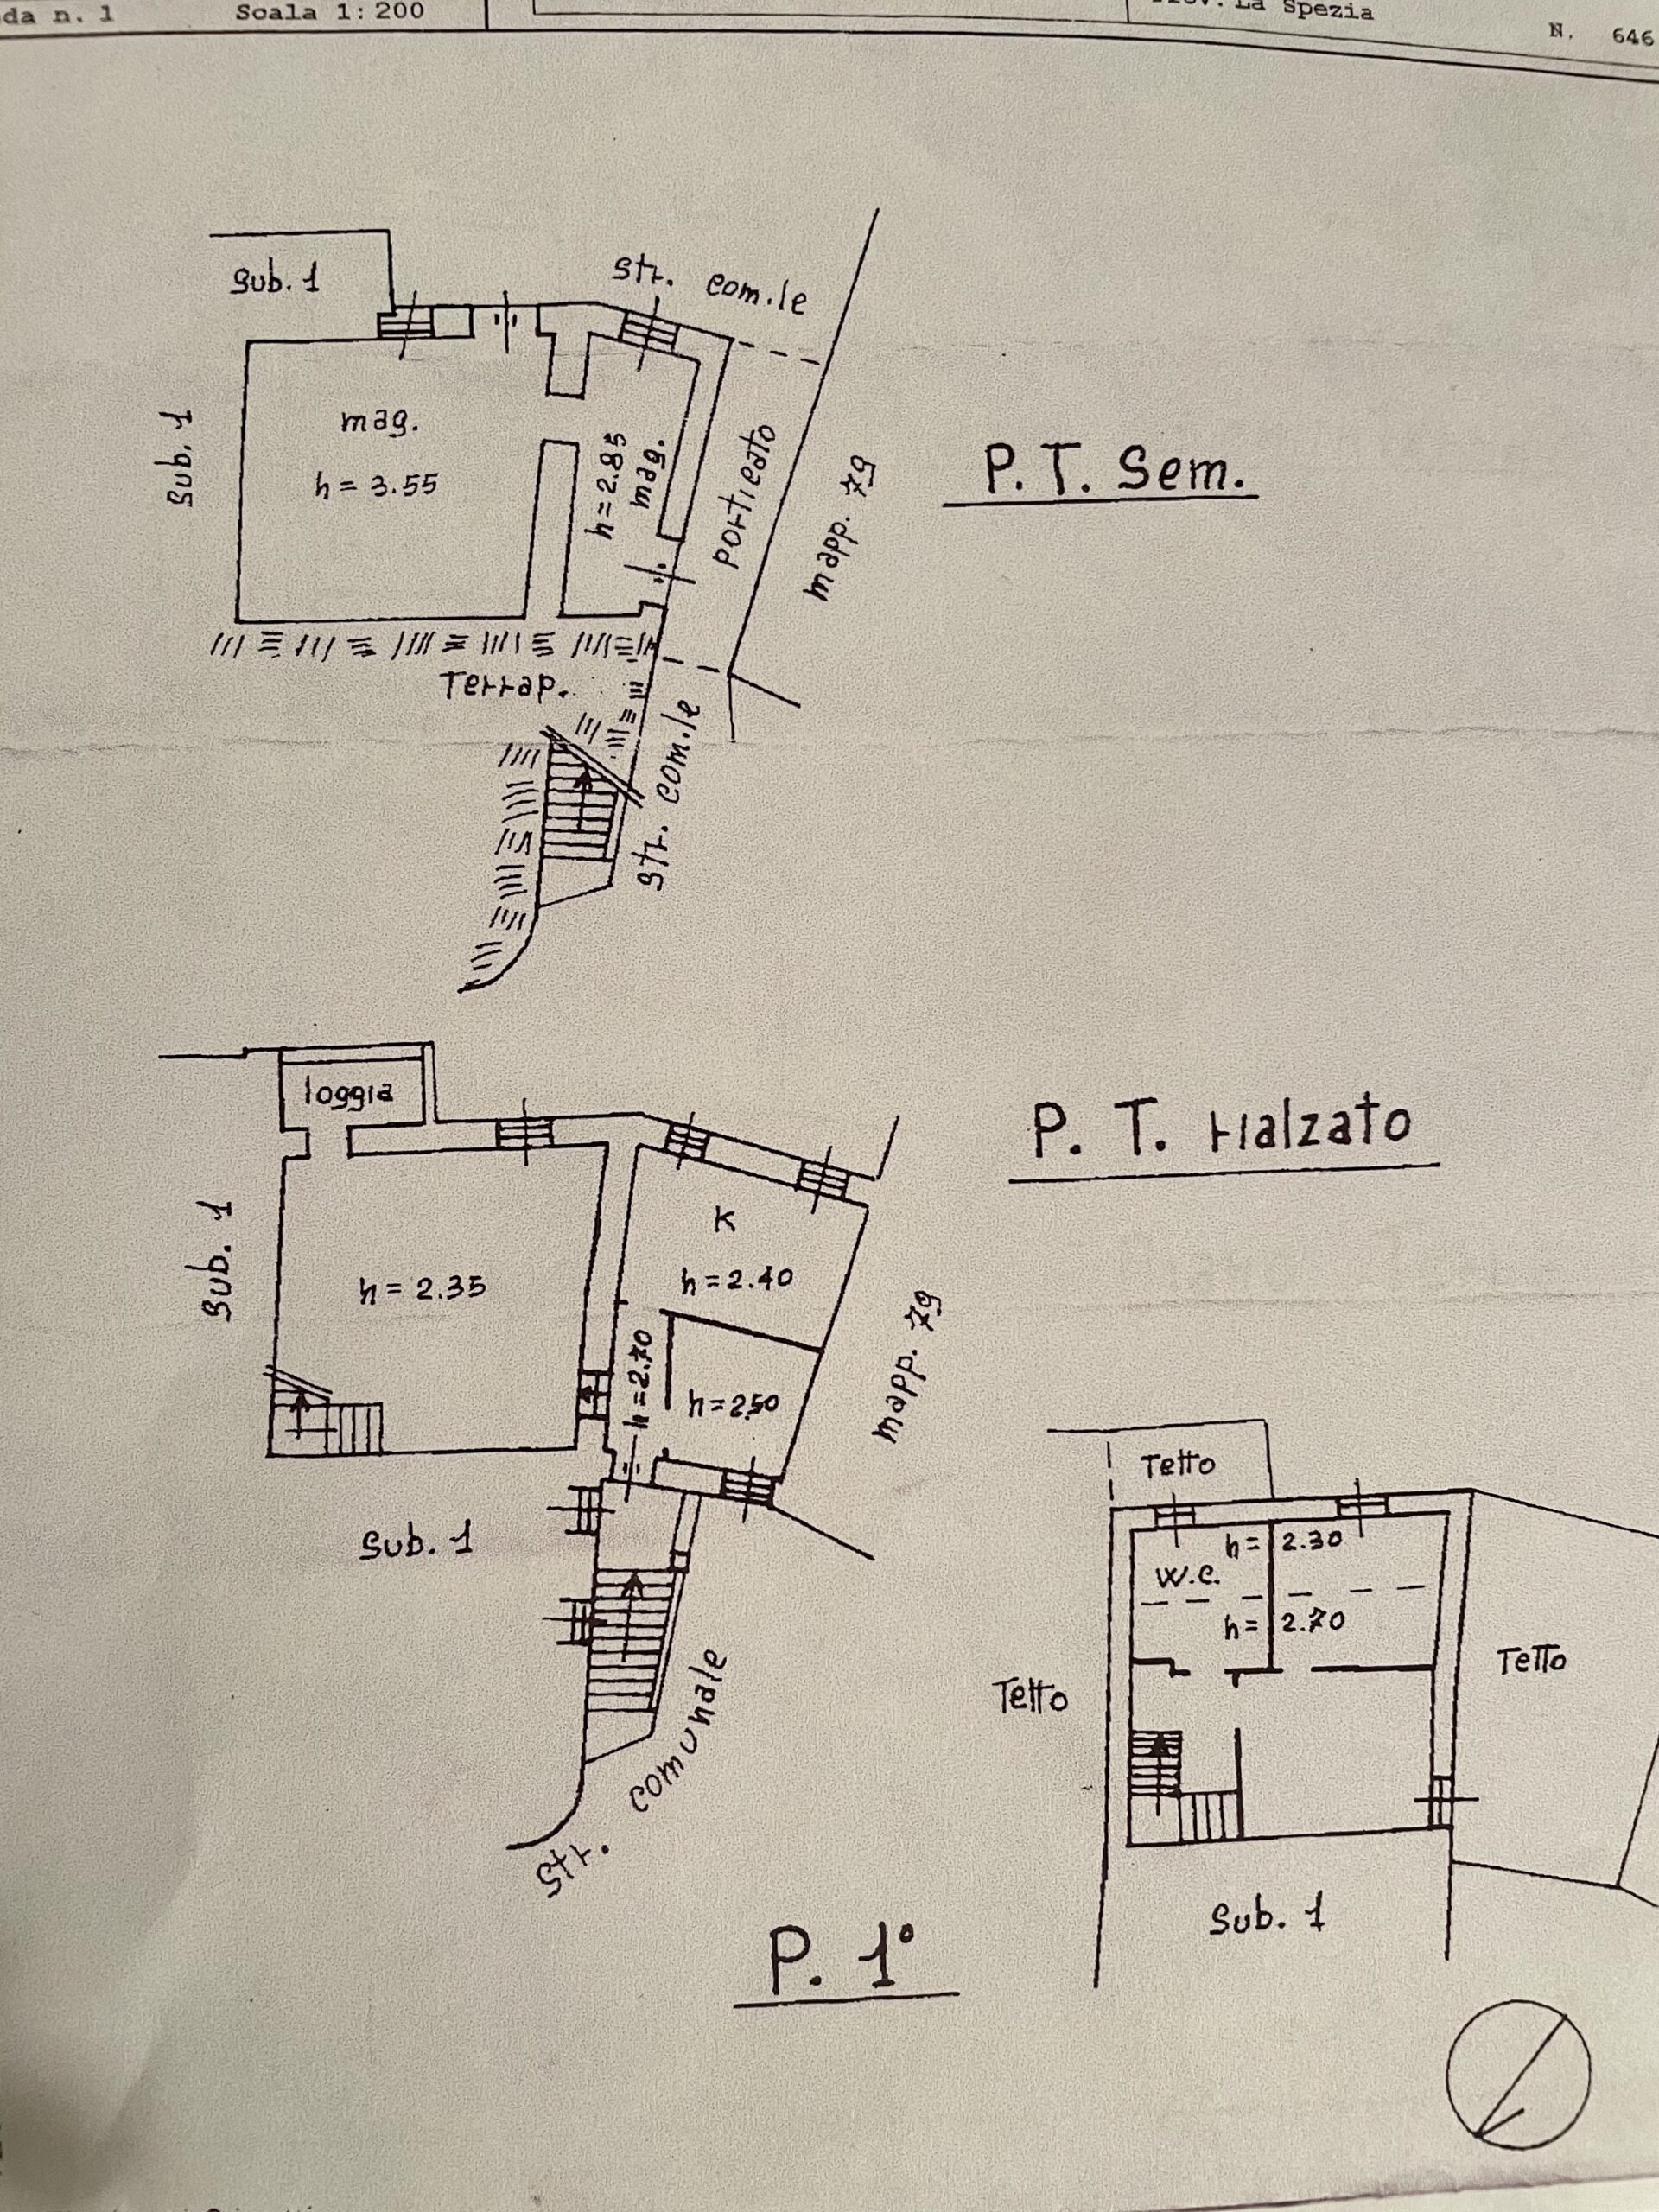 da n. 1
Scala 1:200
La Spezia
N. 646
sub. 1
str. com.le
sub. 1
mag.
h = 3.55
h = 2.85
mag.
porticato
mapp. 79
P. T. Sem.
Terrap.
str. com.le
loggia
P. T. rialzato
sub. 1
K
h = 2.40
h = 2.35
h = 2.70
h = 2.50
mapp. 79
sub. 1
Str. comunale
Tetto
h = 2.30
w.c.
h = 2.70
Tetto
Tetto
Sub. 1
P. 1°